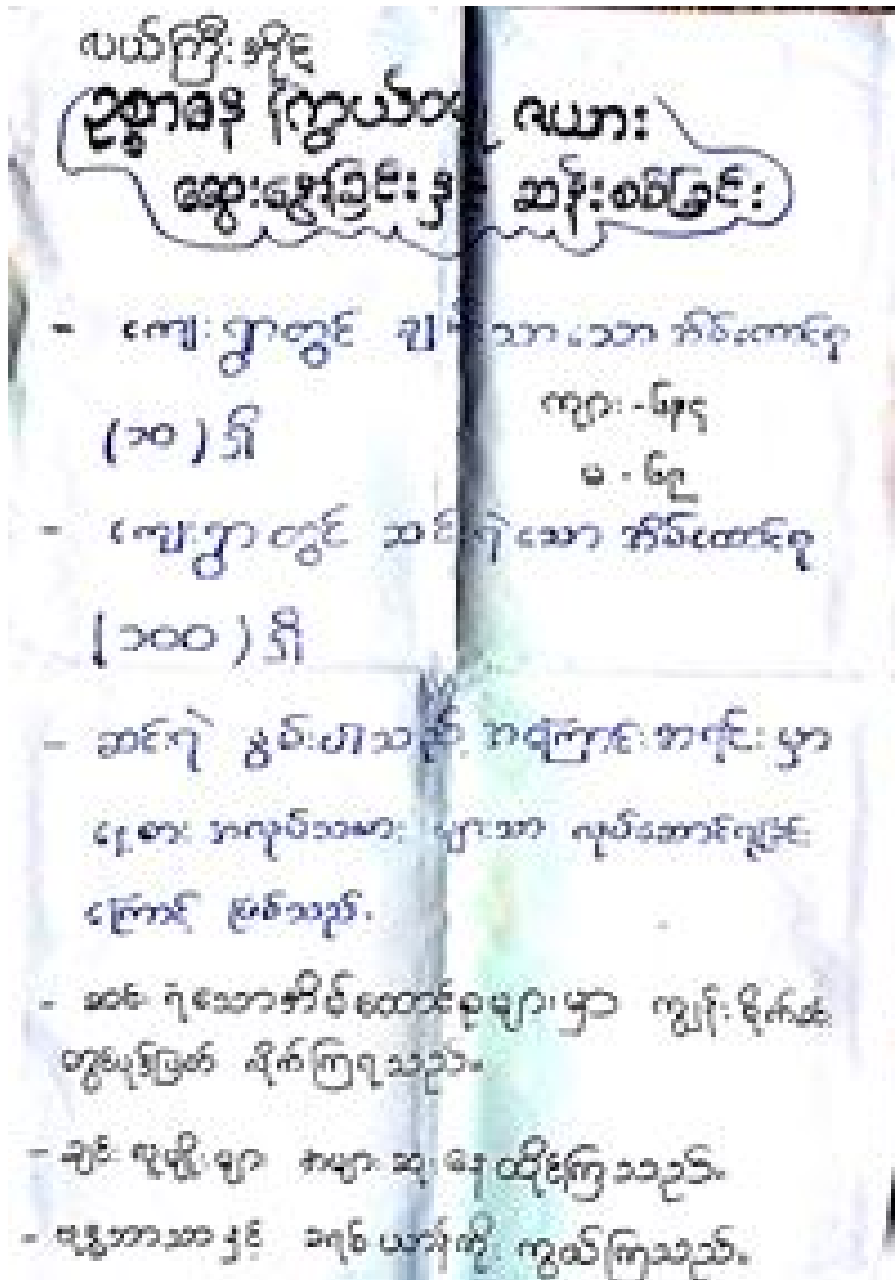 လယ်ကြီးအိုင်
ဥစ္စာဓန ကြွယ်ဝမှု ဇယား
ဆွေးနွေးခြင်းနှင့် ဆန်းစစ်ခြင်း
- ကျေးရွာတွင် ချမ်းသာသော အိမ်ထောင်စု
(၁၀) ရှိ
ကျား -
မ -
- ကျေးရွာတွင် ဆင်းရဲသော အိမ်ထောင်စု
(၁၀၀) ရှိ
- ဆင်းရဲ နွမ်းပါးသည့် အကြောင်းအရင်းမှာ
နေ့စား အလုပ်သမား များသာ လုပ်ဆောင်ရခြင်း
ကြောင့် ဖြစ်သည်။
- ဆင်းရဲသောအိမ်ထောင်စုများမှာ ကျွန်းစိုက်ခင်း
တွင် လိုက်ကြရသည်။
- ချင်းလူမျိုးများ အများဆုံးနေထိုင်ကြသည်။
- ဗုဒ္ဓဘာသာနှင့် ခရစ်ယာန်ကို ကွယ်ကြသည်။